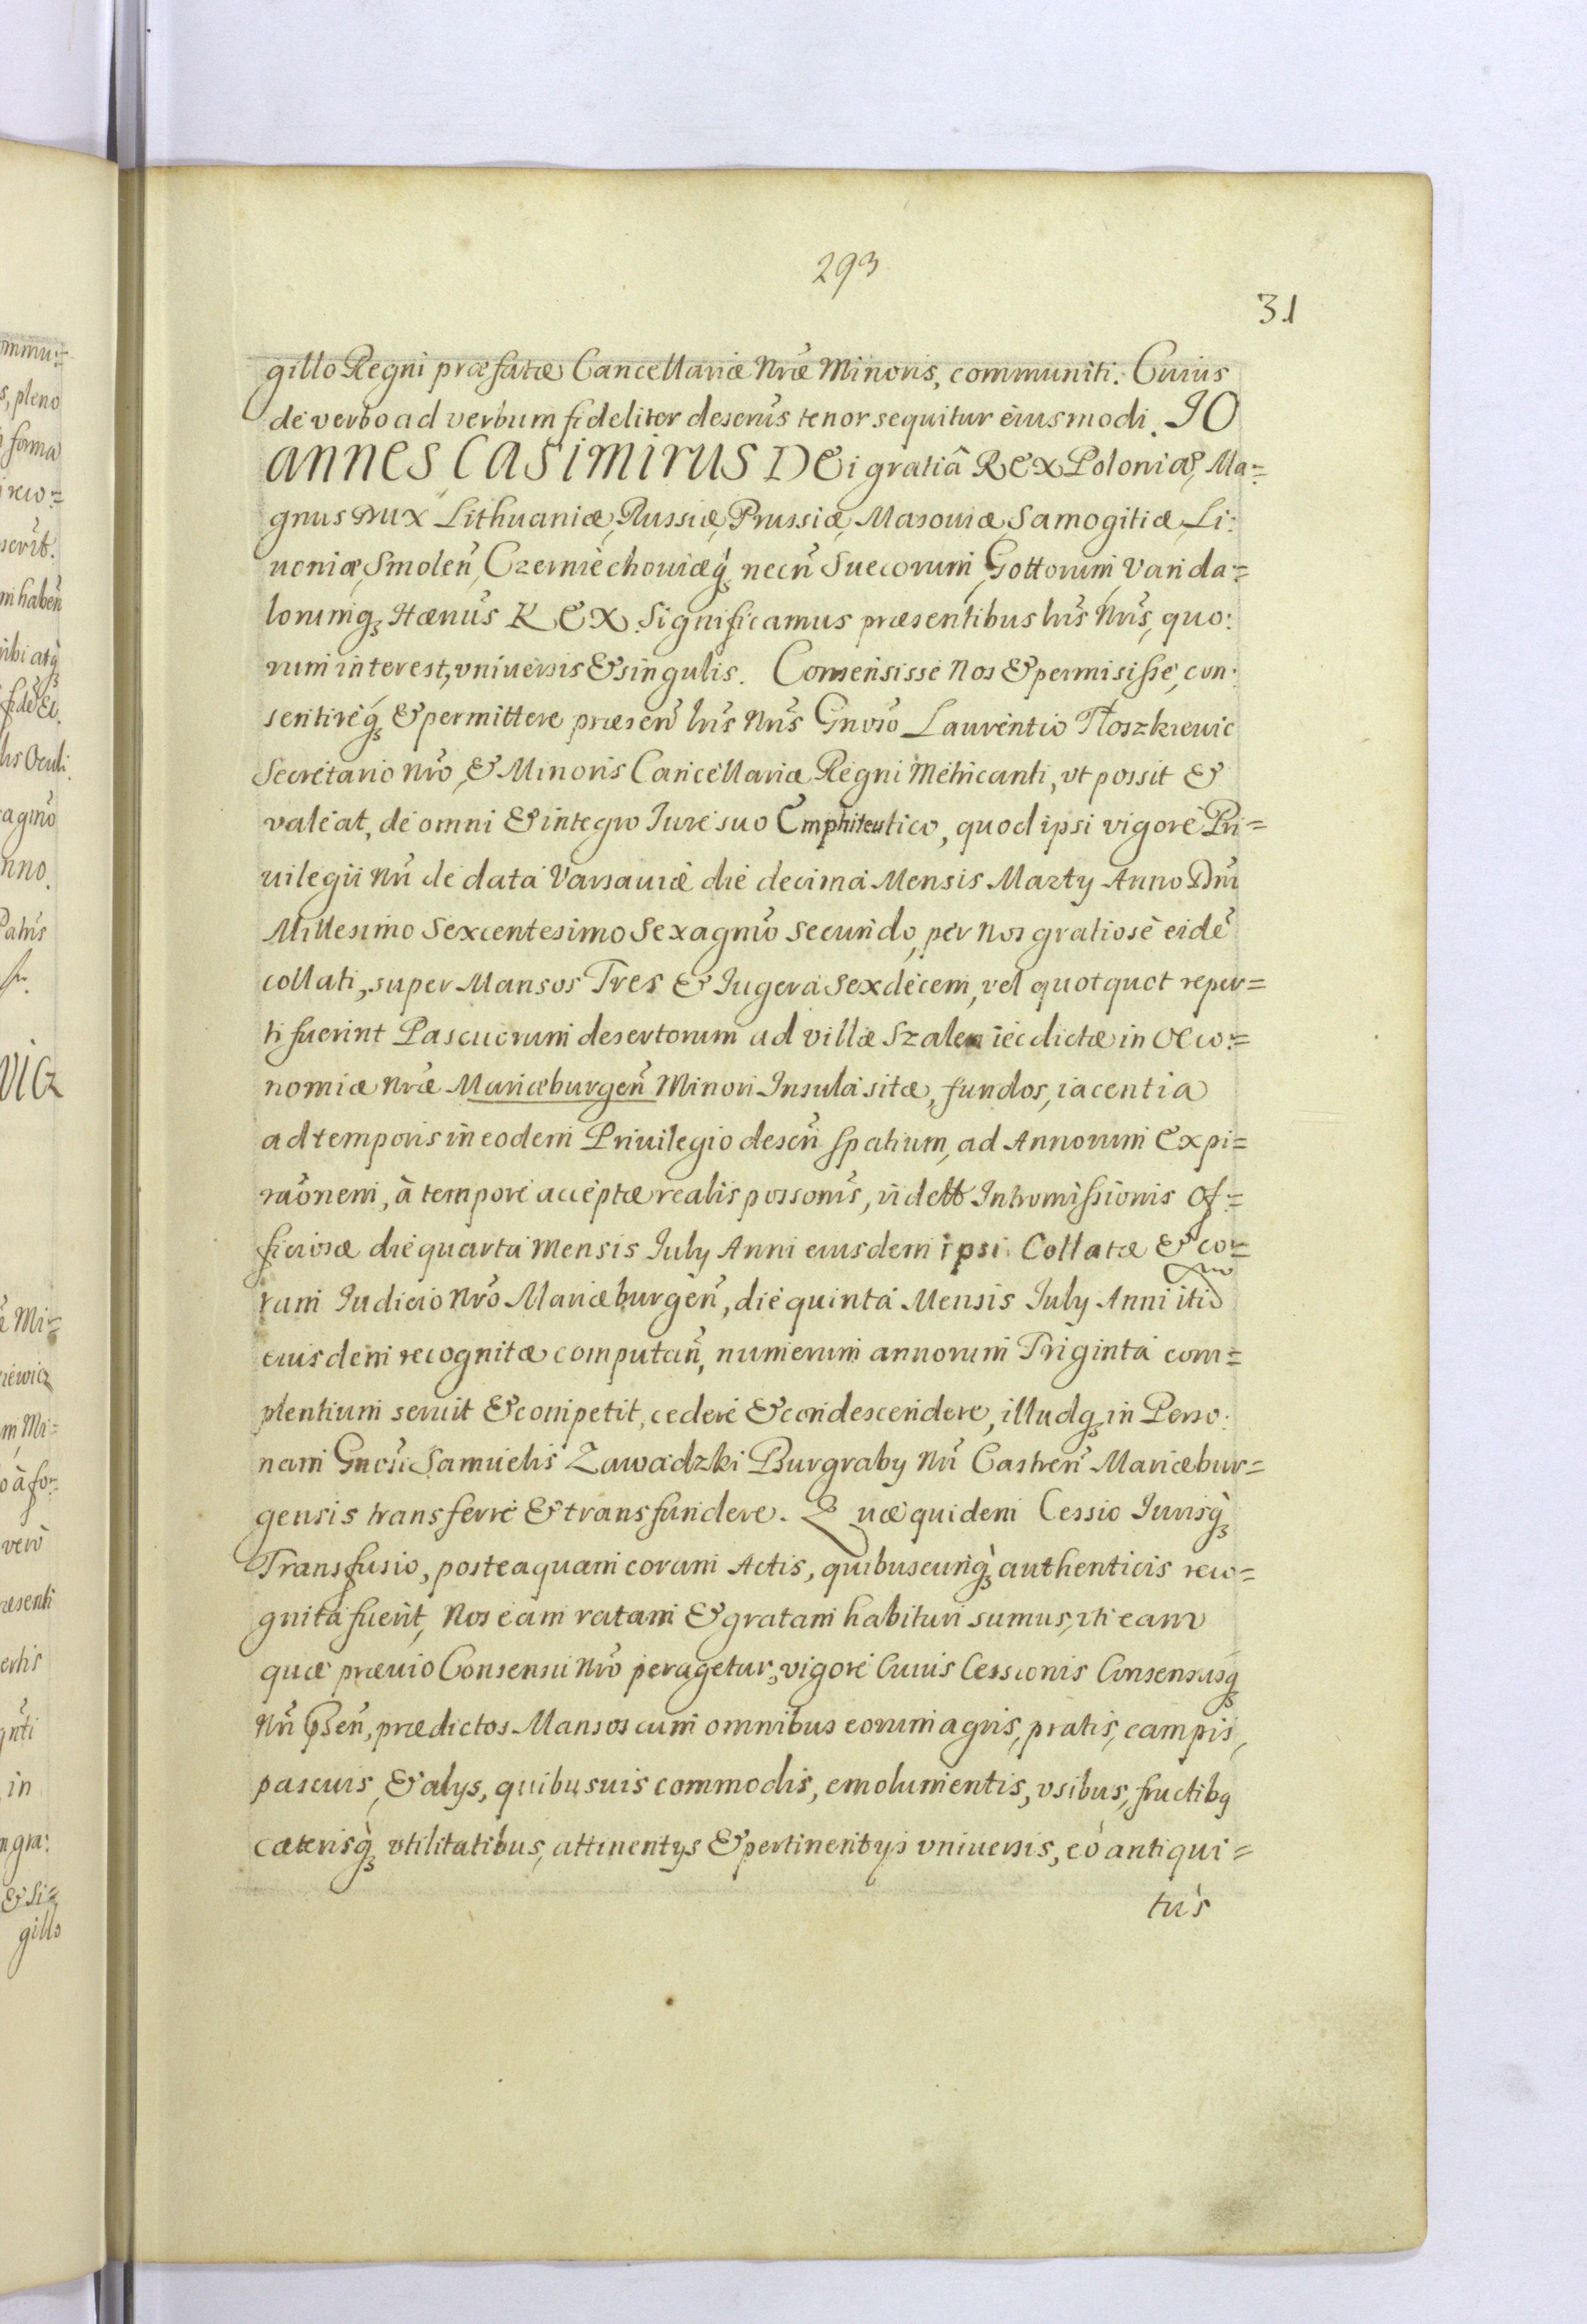 293
31
gillo Regni præfatæ Cancellariæ Nræ Minoris, communiti. Cuius
de verbo ad verbum fideliter descrus tenor sequitur eiusmodi. JO
ANNES CASIMIRUS DEi gratiâ REX Poloniæ, Ma=
gnus DUX Lithuaniæ, Russiæ, Prussiæ, Masouiæ, Samogitiæ, Li:
uoniæ, Smolen̄, Czerniechouiæq̀ȝ necn̄ Suecorum, Gottorum Vanda=
lorumqȝ Hænus REX. Significamus præsentibus lr̄is Nr̄is, quo:
rum interest, vniuersis & singulis. Consensisse Nos & permisisse, con:
sentireq́ȝ & permittere præsen̄ lr̄is Nr̄is Gn̄oso Laurentio Płoszkiewic
Secretario Nr̄o, & Minoris Cancellariæ Regni Metricanti, vt possit &
valeat, de omni & integro Jure suo Emphiteutico, quod ipsi vigore Pri=
uilegii Nr̄i de data Varsauiæ die decima Mensis Marty Anno Dn̄i
Millesimo Sexcentesimo Sexagmo Secundo, per Nos gratiose eidē
collati, super Mansos Tres & Jugera Sexdecem, vel quotquot reper=
ti fuerint Pascuorum desertorum ad villæ Szaleniec dictæ in Oeco:=
nomiæ Nræ Mariæburgen̄ Minori Insula sitæ, fundos, iacentia
ad temporis in eodem Priuilegio descr̄i spatium, ad Annorum Expi=
rāonem, à tempore acceptæ realis possonis, vidett Intromissionis Of:=
ficiosæ die quarta Mensis July Anni eiusdem ipsi Collatæ & co:=
ram Judicio Nr̄o Mariæburgen̄, die quinta Mensis July Anni itid
eiusdem recognitæ computan̄, numerum annorum Triginta com=
plentium seruit & competit, cedere & condescendere, illudqȝ in Perso:
nam Gn̄osi Samuelis Zawadzki Burgraby Nr̄i Castren̄ Mariæbur=
gensis transferre & transfundere. Quæ quidem Cessio Jurisq̀ȝ
Transfusio, posteaquam coram Actis, quibuscunq̀ȝ authenticis reco=
gnita fuerit, Nos eam ratam & gratam habituri sumus, vti eam
quæ præuio Consensu Nr̄o peragetur, vigore Cuius Cessionis Consensusqȝ
Nr̄i Pꝛsen̄, prædictos Mansos cum omnibus eorum agris, pratis, campis,
pascuis, & alys, quibusuis commodis, emolumentis, vsibus, fructibȝ
cæterisq̀ȝ vtilitatibus, attinentys & pertinentys vniuersis, eò antiqui=
tùs